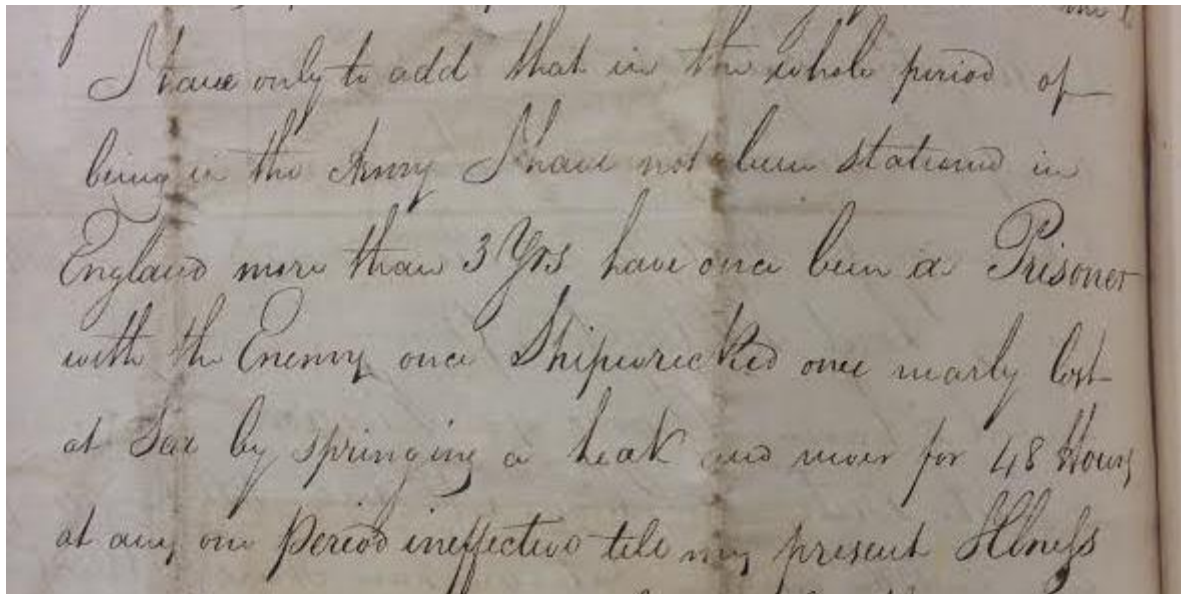 I have only to add that in the whole period of
being in the Army I have not been stationed in
England more than 3 Yrs have once been a Prisoner
with the Enemy once Shipwrecked once nearly lost
at Sea by springing a Leak and never for 48 Hours
at any one Period ineffective till my present Illness